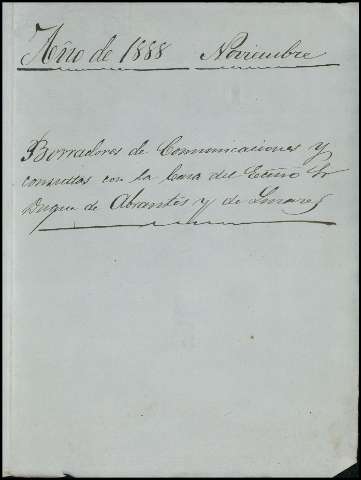 Año de 1888 Noviembre
Borradores de Comunicaciones y
consultas con la Casa del Ecsmo Sr
Duque de Abrantes y de Linares